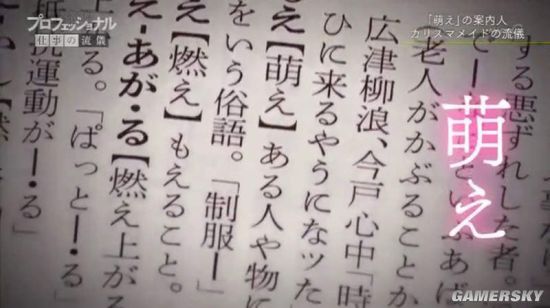 プロフェッショナル
仕事の流儀
「萌え」の案内人
カリスマメイドの流儀
萌え
する悪ずれした者。
老人がかぶることか
広津柳浪、今戸心中「時
ひに来るやうになッた
え【萌え】ある人や物に
をいう俗語。「制服―」
え【燃え】もえること。
え‐あが・る【燃え上がる
る。「ぱっと―・る」
運動が―・る」
GAMERSKY